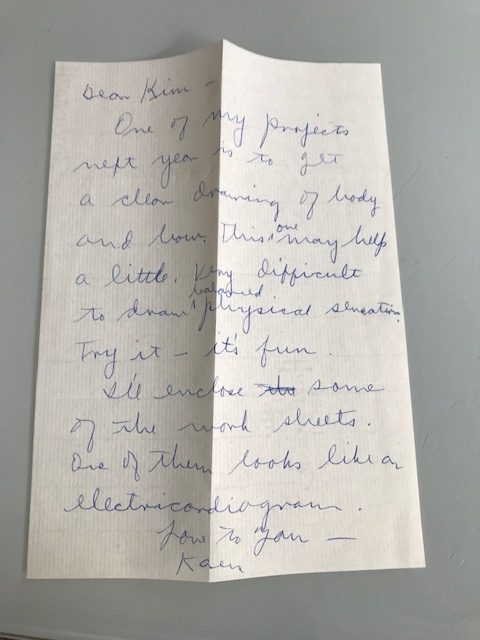 Dear Kim -
One of my projects
next year is to get
a clean drawing of body
and bow. This one may help
a little. Very difficult
to draw balanced physical sensation.
Try it - it's fun.
I'll enclose some
of the work sheets.
One of them looks like an
electricardiagram.
Love to you -
Karen